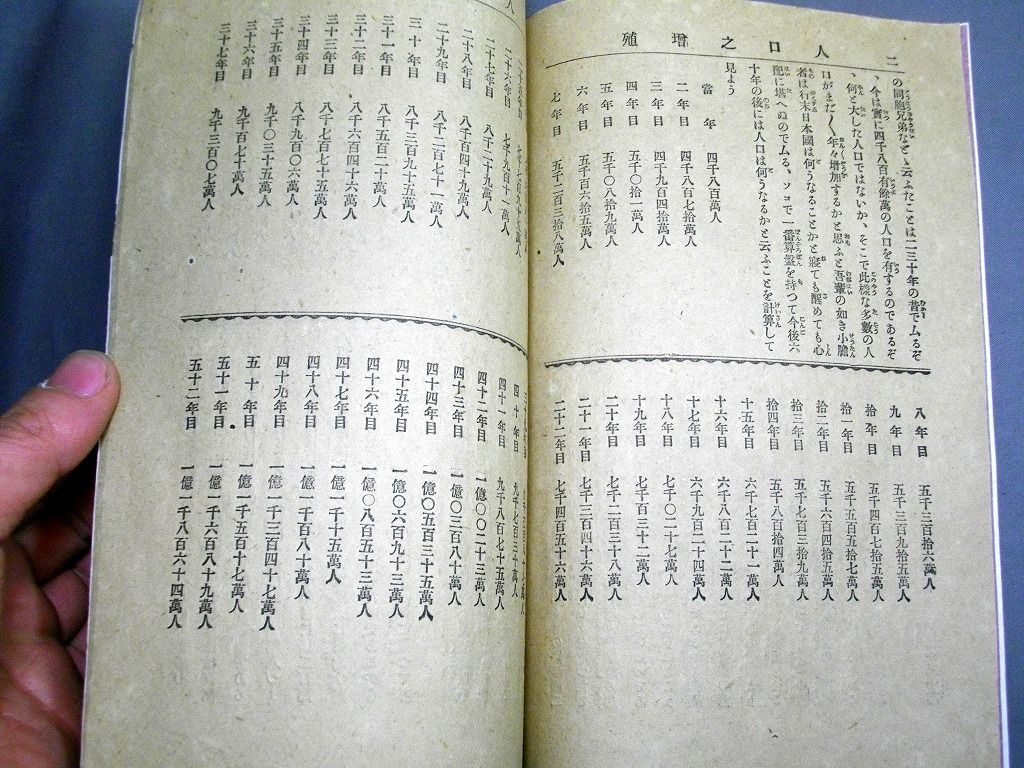 人口之增殖
二
の同胞兄弟などゝ云ふたことは二三十年の昔でムるぞ
、今は實に四千八百有餘萬の人口を有するのであるぞ
、何と大した人口ではないか、そこで此樣な多數の人
口がまだ〳〵年々增加するかと思ふと吾輩の如き小膽
者は行末日本國は何うなることかと寢ても醒めても心
配に堪へぬのでムる、ソコで一番算盤を持つて今後六
十年の後には人口は何うなるかと云ふことを計算して
見よう
當年 四千八百萬人
二年目 四千八百七拾萬人
三年目 四千九百四拾萬人
四年目 五千〇拾一萬人
五年目 五千〇八拾九萬人
六年目 五千百六拾五萬人
七年目 五千二百三拾八萬人
八年目 五千三百拾六萬人
九年目 五千三百九拾五萬人
拾年目 五千四百七拾五萬人
拾一年目 五千五百五拾七萬人
拾二年目 五千六百四拾五萬人
拾三年目 五千七百三拾九萬人
拾四年目 五千八百拾四萬人
十五年目 六千七百二十一萬人
十六年目 六千八百二十二萬人
十七年目 六千九百二十四萬人
十八年目 七千〇二十七萬人
十九年目 七千百三十二萬人
二十年目 七千二百三十八萬人
二十一年目 七千三百四十六萬人
二十二年目 七千四百五十六萬人
人
二十六年目 七千九百十一萬人
二十七年目 八千二十九萬人
二十八年目 八千百四十九萬人
二十九年目 八千二百七十一萬人
三十年目 八千三百九十五萬人
三十一年目 八千五百二十萬人
三十二年目 八千六百四十六萬人
三十三年目 八千七百七十五萬人
三十四年目 八千九百〇六萬人
三十五年目 九千〇三十五萬人
三十六年目 九千百七十萬人
三十七年目 九千三百〇七萬人
四十年目 九千七百三十萬人
四十一年目 九千八百七十五萬人
四十二年目 一億〇〇二十三萬人
四十三年目 一億〇三百八十萬人
四十四年目 一億〇五百三十五萬人
四十五年目 一億〇六百九十三萬人
四十六年目 一億〇八百五十三萬人
四十七年目 一億一千十五萬人
四十八年目 一億一千百八十萬人
四十九年目 一億一千三百四十七萬人
五十年目 一億一千五百十七萬人
五十一年目 一億一千六百八十九萬人
五十二年目 一億一千八百六十四萬人